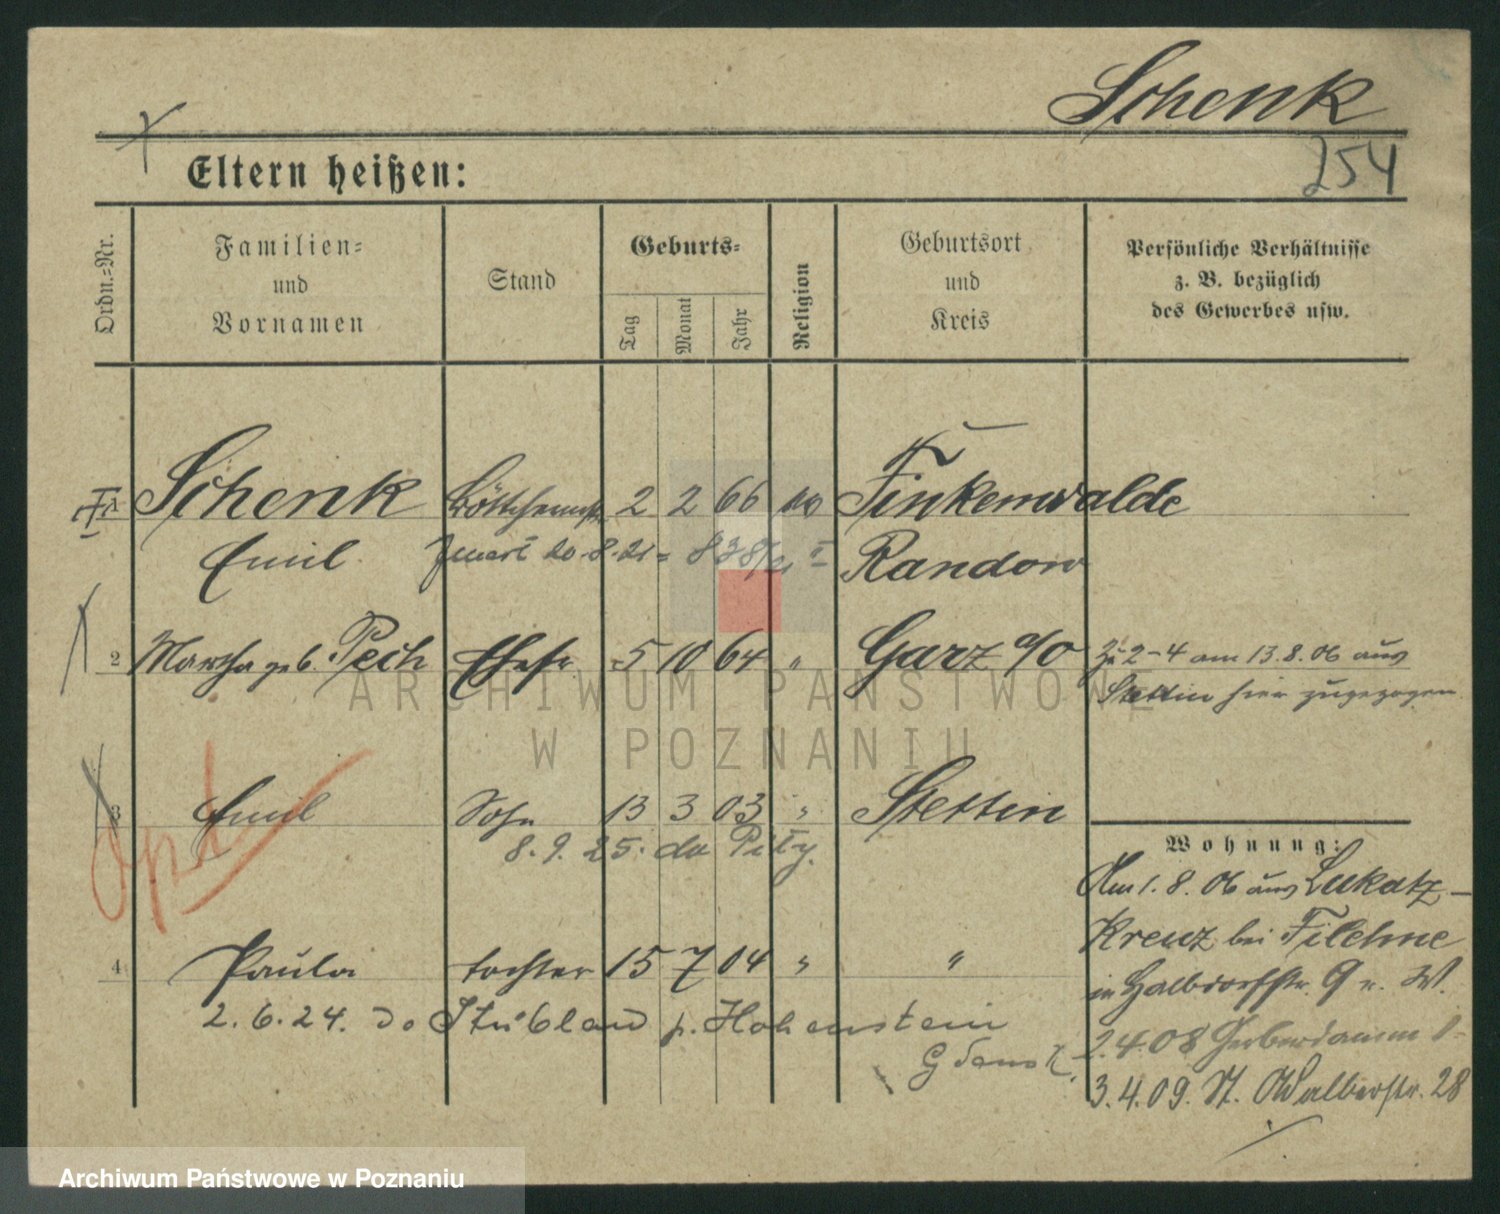 Schenk
254
Eltern heißen:
Ordn.=Nr.
Familien=
und
Vornamen
Stand
Geburts=
Tag
Monat
Jahr
Religion
Geburtsort
und
Kreis
Persönliche Verhältnisse
z. B. bezüglich
des Gewerbes usw.
Schenk 2 2 66 Finkenwalde
Emil 20.8.21 Randow
2 Martha geb. Pech Ehefr 5 10 64 " Garz a/O zu 2–4 am 13.8.06 aus
Stettin hier zugezogen
ARCHIWUM PAŃSTWOWE
W POZNANIU
3 Emil Sohn 13 3 03 " Stettin
8.9.25. do Piły.
opt
Wohnung:
Am 1.8.06 aus Lukatz–
Kreuz bei Filehne
in Halbdorfstr. 9 W.
4 Paula Tochter 15 7 04 " "
2.6.24. do Stüblau p. Hohenstein
Gdansk.
2.4.08 Gerberdamm
3.4.09. St. Adalbertstr. 28
Archiwum Państwowe w Poznaniu